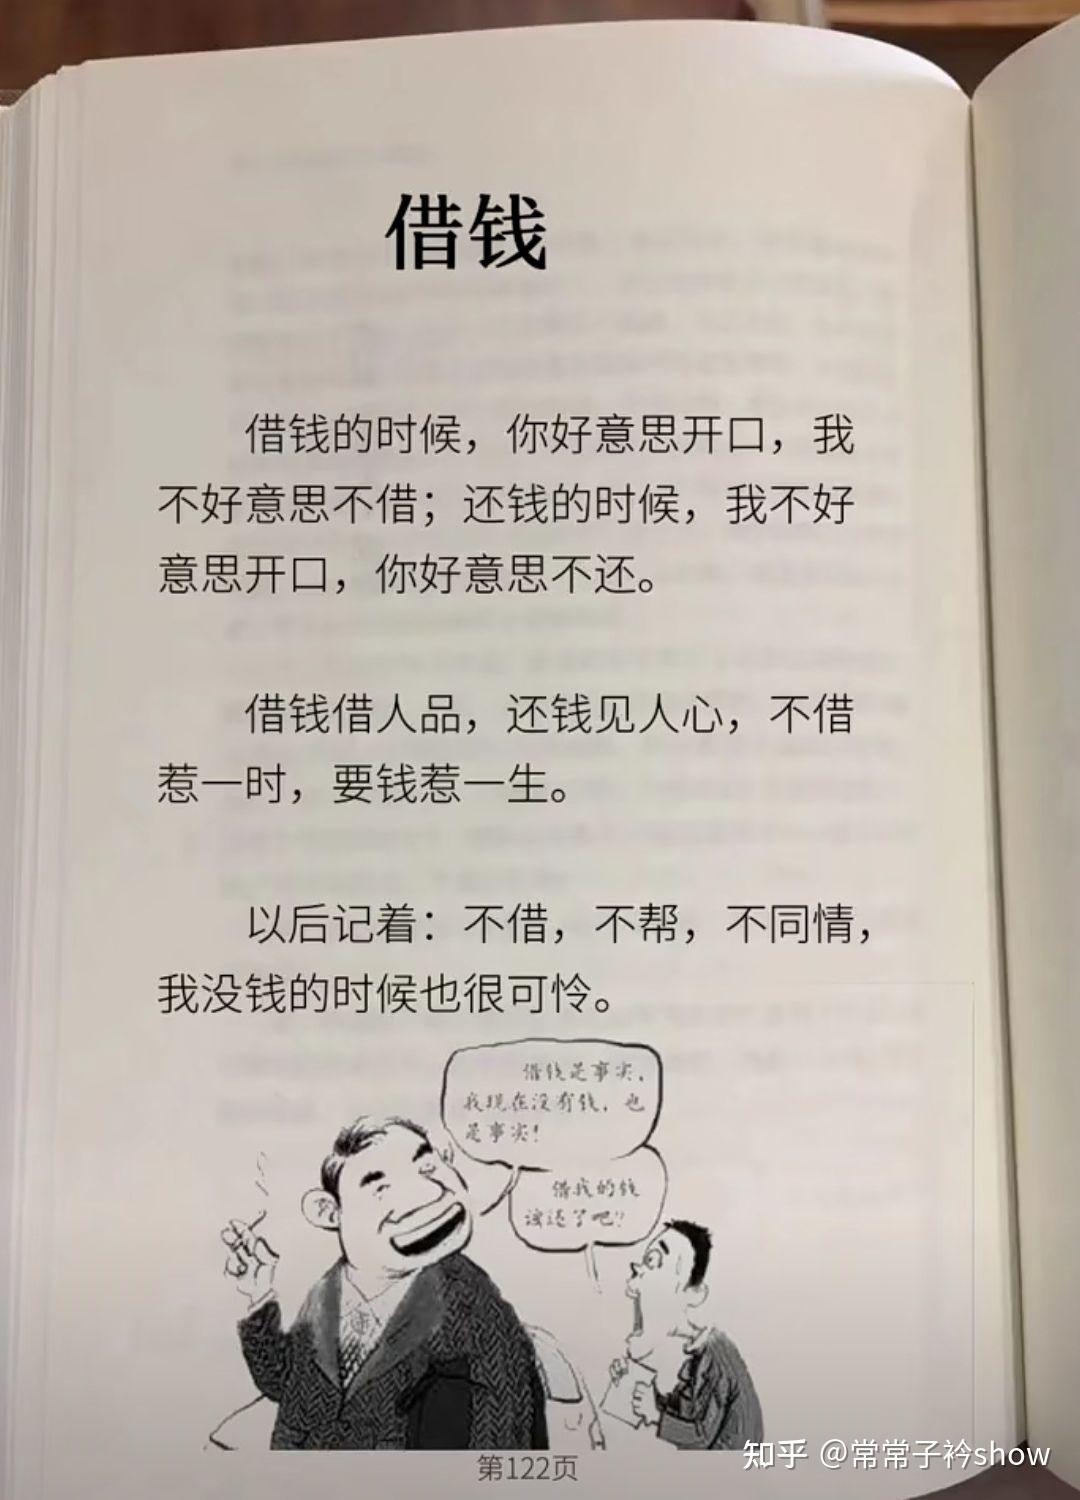 借钱
借钱的时候，你好意思开口，我
不好意思不借；还钱的时候，我不好
意思开口，你好意思不还。
借钱借人品，还钱见人心，不借
惹一时，要钱惹一生。
以后记着：不借，不帮，不同情，
我没钱的时候也很可怜。
借钱是事实，
我现在没有钱，也
是事实！
借我的钱
该还了吧？
第122页
知乎 @常常子衿show